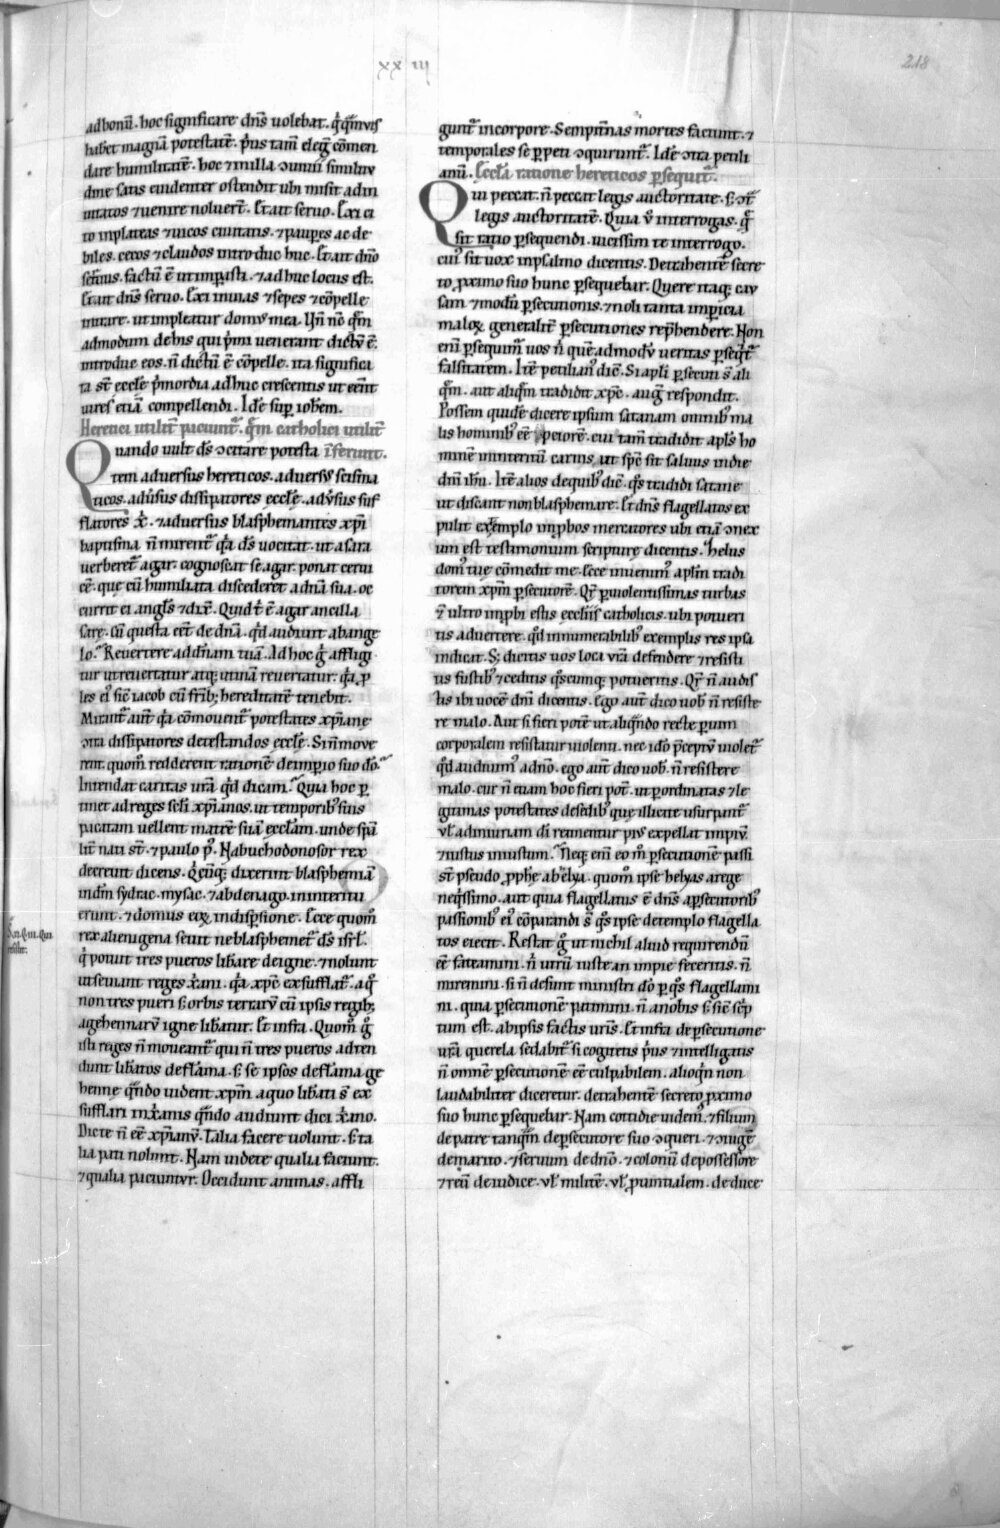 xx iij
218
ad bonū. hoc significare dn̄s uolebat. q̇ q̄muis
habet magnā potestatē. pͥus tam̄ elegͭ cōmen
dare humilitatē. hoc ⁊ in illa ↄuiuii similitu
dine satis euidenter ostendit ubi misit ad in
uitatos ⁊ uenire noluerͭ. Et ait seruo. Exi ci
to in plateas ⁊ uicos ciuitatis. ⁊ pauꝑes ac de
biles. cecos ⁊ claudos intro duc huc. Et ait dn̄o
seruus. factū ē ut imꝑasti. ⁊ adhuc locus est.
Et ait dn̄s seruo. Exi in uias ⁊ sepes ⁊ cōpelle
intrare. ut impleatur domꝰ mea. Vn̄ nc̄ q̄m
admodum de his qui pͥmi uenerant dictū ē.
introduc eos. n̄ dictū ē cōpelle. ita significa
ta st̄ eccłe pͥmordia adhuc crescentis ut eēnt
uires etiā compellendi. Idē suꝑ ioh̄em.
Heretici utilit̄ paciunt᷒. q̄m catholici utilit̄
Quando uult dꝰ ↄcitare potesta īferunt.
tem aduersus hereticos. aduersꝰ scisma
ticos. aduͥsus dissipatores eccłe. aduͥsus suf
flatores x͞. ⁊ aduersus blasphemantes xp̄i
baptisma n̄ mirent᷒ q̇a dꝰ ↄcitat. ut a sara
uerberet᷒ agar. cognoscat se agar. ponat cerui
cē. que cū humiliata discederet a dn̄a sua. oc
currit ei angłs ⁊ dix̄. Quid t̄ ē agar ancilla
sare. cū questa eēt de dn̄a. q̇d audiuit ab ange
lo. Reuertere ad dn̄am tuā. Ad hoc g̊ affligi
tur ut reuertatur atq; utinā reuertatur. q̇a ꝓ
les eiꝰ sic̄ iacob cū fr̄ib; hereditatē tenebit.
Mirant᷒ aūt q̇a cōmouent᷒ potestates xp̄iane
ↄtra dissipatores detestandos eccłe. Si n̄ moue
rent᷒. quom̊ redderent rationē de imꝑio suo do͞.
Intendat caritas ur̄a q̇d dicam. Quia hoc ꝑ
tinet ad reges sc̄li xp̄ianos. ut temporibꝰ suis
pacatam uellent matrē suā eccłam. unde sp̄a
lit̄ nati st̄. ⁊ paulo pꝰ. Nabuchodonosor rex
decreuit dicens. Q̇cūq; dixerint blasphemiā
in dm̄ sydrac. mysac. ⁊ abdenago. in interitu
erunt. ⁊ domus eoꝝ in disꝑsione. Ecce quom̊
rex alienigena seuit ne blasphemet᷒ ds̄ isrł.
q̇ potuit tres pueros libare de igne. ⁊ nolunt
ut seuiant reges xāni. q̇a xpc̄ exsufflat᷒. a q̊
non tres pueri s; orbis terrarū cū ipsis regib;
a gehennarū igne libatur. Et infra. Quom̊ g̊
isti reges n̄ moueant᷒ qui n̄ tres pueros adten
dunt libatos de flāma. s; se ipsos de flāma ge
henne q̄ndo uident xp̄m a quo libati s̄t ex
sufflari in xanis q̄ndo audiunt dici xāno.
Dic te n̄ eē xp̄ianū. Talia facere uolunt. s; ta
lia pati nolunt. Nam uidete qualia faciunt.
⁊ qualia paciuntur. Occidunt animas. affli
gunt᷒ in corpore. Sempit̄nas mortes faciunt. ⁊
temporales se ꝑpeti ↄquirunt᷒. Idē ↄtra petili
anū. Eccłia ratione hereticos ꝑsequit᷒.
Qui peccat. n̄ peccat legis auctoritate. s; ↄt᷒
legis auctoritatē. Quia uͦ interrogas. q̄
sit ratio ꝑsequendi. uicissim te interrogo.
cuiꝰ sit uox in psalmo dicentis. Detrahentē secre
to ꝓximo suo hunc ꝑsequebar. Quere itaq; cau
sam ⁊ modū ꝑsecutionis. ⁊ noli tanta imꝑicia
maloꝝ generalit̄ ꝑsecutiones rep̄hendere. Non
enī ꝑsequimꝰ uos n̄ quēadmodū ueritas ꝑseq̇t᷒
falsitatem. Itē petilianꝰ dic̄. Si apłi ꝑsecuti s̄t ali
q̄m. aut aliq̄m tradidit xpc̄. augꝰ respondit.
Possem quidē dicere ipsum satanam omnibꝰ ma
lis hominibꝰ eē peiorē. cui tam̄ tradidit apłs ho
minē in interitū carnis. ut sp̄c sit saluus in die
dn̄i ihū. Itē alios de quibꝰ dic̄. q̊s tradidi satane
ut discant non blasphemare. Et dn̄s flagellatos ex
pulit exemplo improbos mercatores ubi etiā ↄnex
um est testimonium scripture dicentis. Zelus
domꝰ tue cōmedit me. Ecce inuenimꝰ apłm tradi
torem xp̄m ꝑsecutorē. Qͣꝛ ꝑuiolentissimas turbas
⁊ ultro improbi estis eccłiis catholicis. ubi potueri
tis aduertere. q̇d innumerabilibꝰ exemplis res ipsa
indicat. S; dicitis uos loca ur̄a defendere ⁊ resisti
tis fustibꝰ ⁊ cedibus q̊scumq; potueritis. Qͣꝛ n̄ audis
tis ibi uocē dn̄i dicentis. Ego aut̄ dico uob̄ n̄ resiste
re malo. Aut si fieri potē ut aliq̄ndo recte ꝑ uim
corporalem resistatur uiolenti. nec id̄o p̄ceptū uiolet᷒
q̇d audiuimꝰ a dn̄o. ego aut̄ dico uob̄. n̄ resistere
malo. cur n̄ etiam hoc fieri potē. ut ꝑ ordinatas ⁊ le
gitimas potestates de sedibꝰ que illicite usurpant᷒
uł ad iniuriam di retinentur piꝰ expellat impiū.
⁊ iustus iniustum. Neq; enī eo m̊ ꝑsecutionē passi
st̄ pseudo ꝓphe ab helya. quom̊ ipse helyas a rege
neq̇ssimo. aut quia flagellatus ē dn̄s a ꝑsecutoribꝰ
passionibꝰ eiꝰ cōparandi s̄t q̊s ipse de templo flagella
tos eiecit. Restat g̊ ut nichil aliud requirendū
eē fateamini. n̄ utrū iuste an impie feceritis. n̄
miremini. si n̄ desunt ministri do͞ ꝑ q̊s flagellami
ni. qua ꝑsecutionē patimini. n̄ a nobis s; sic̄ sc̄p
tum est. ab ipsis factis ur̄is. Et infra de ꝑsecutione
ur̄a querela sedabit᷒ si cogitetis pͥus ⁊ intelligatis
n̄ omnē ꝑsecutionē eē culpabilem. alioq̇n non
laudabiliter diceretur. detrahentē secreto ꝓximo
suo hunc ꝑsequebar. Nam cotidie uidemꝰ. ⁊ filium
de patre tanq̄m de ꝑsecutore suo ↄqueri. ⁊ ↄiugē
de marito. ⁊ seruum de dn̄o. ⁊ colonū de possessore
⁊ reū de iudice. uł militē. uł ꝓuintialem. de duce